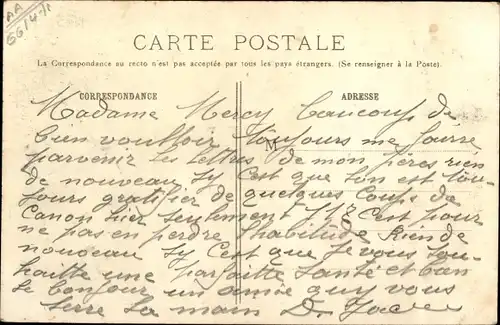 AA
CARTE POSTALE
La Correspondance au recto n'est pas acceptée par tous les pays étrangers. (Se renseigner à la Poste).
CORRESPONDANCE
ADRESSE
M
Madame Mercy Baucoup de
bien voulloir toujours me fairre
parvenir les lettres de mon frères rien
de nouveau sy c'est que l'on est tou-
jours gratifier de quelques coups de
Canon hier seulement 117 c'est pour
ne pas en perdre l'habitude Rien de
nouveau sy c'est que je vous sou-
haitte une parfaitte santé et bien
le bonjour un amie quy vous
serre la main D.